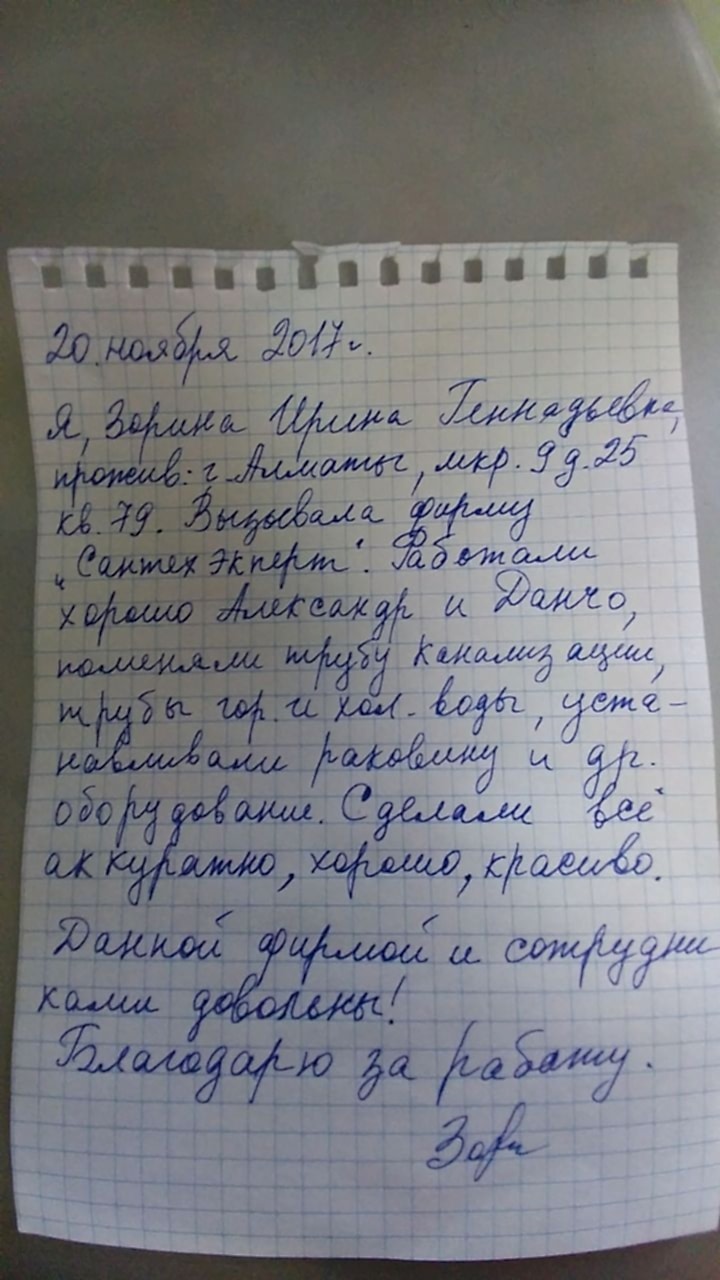 20 ноября 2017г.
Я, Зорина Ирина Геннадьевна,
прожив: г. Алматы, мкр. 9 д. 25
кв. 79. Вызывала фирму
„Сантех Экперт". Работали
хорошо Александр и Данчо,
поменяли трубу канализации,
трубы гор. и хол. воды, уста-
навливали раковину и др.
оборудование. Сделали всё
аккуратно, хорошо, красиво.
Данной фирмой и сотрудни
ками довольны!
Благодарю за работу.
Зори